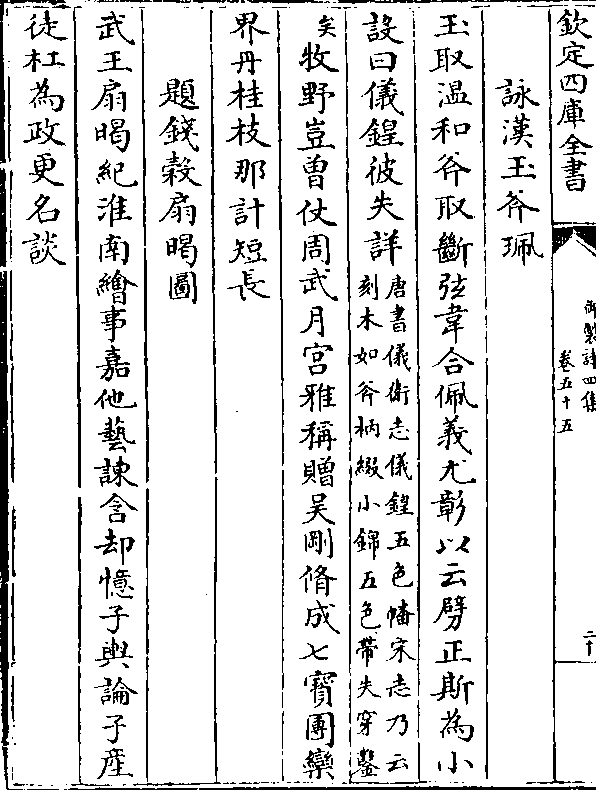 欽定四庫全書
御製詩四集
卷五十五
二十
詠漢玉斧珮
玉取温和斧取斷弦韋合佩義尤彰以云劈正斯為小
設曰儀鍠彼失詳唐書儀衛志儀鍠五色幡宋志乃云
刻木如斧柄綴小錦五色帶失穿鑿
矣牧野豈曽仗周武月宫雅稱贈吴剛脩成七寳團欒
界丹桂枝那計短長
題錢榖扇暍圖
武王扇暍紀淮南繪事嘉他藝諫含却憶子輿論子産
徒杠為政更名談